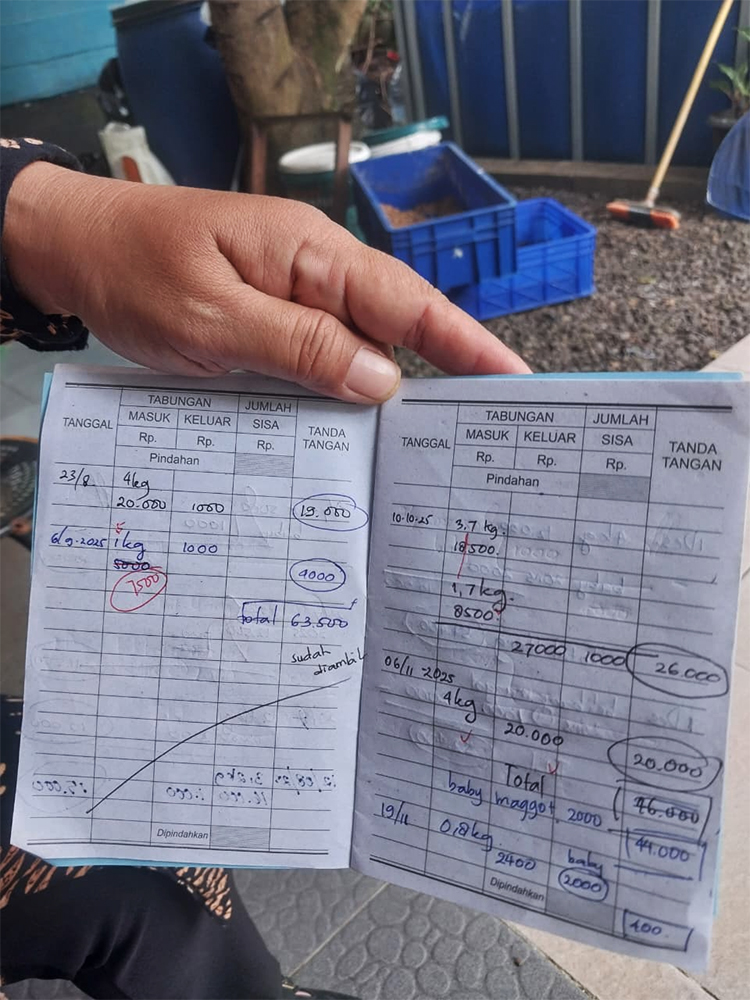 TABUNGAN JUMLAH
TANGGAL MASUK KELUAR SISA TANDA TANGAN
Rp. Rp. Rp.
Pindahan
23/8 4kg
20.000 1000 19.000
6/9-2025 1 kg 1000
5000
7500 4000
Total 63.500
sudah
diambil
Dipindahkan
TABUNGAN JUMLAH
TANGGAL MASUK KELUAR SISA TANDA TANGAN
Rp. Rp. Rp.
Pindahan
10-10-25 3.7 kg.
18500.
1,7 kg.
8500
27000 1000 26.000
06/11-2025
4kg
20.000 20.000
Total 46.000
baby maggot 2000 44.000
19/11 0,8kg.
2400 baby
2000
Dipindahkan
400.